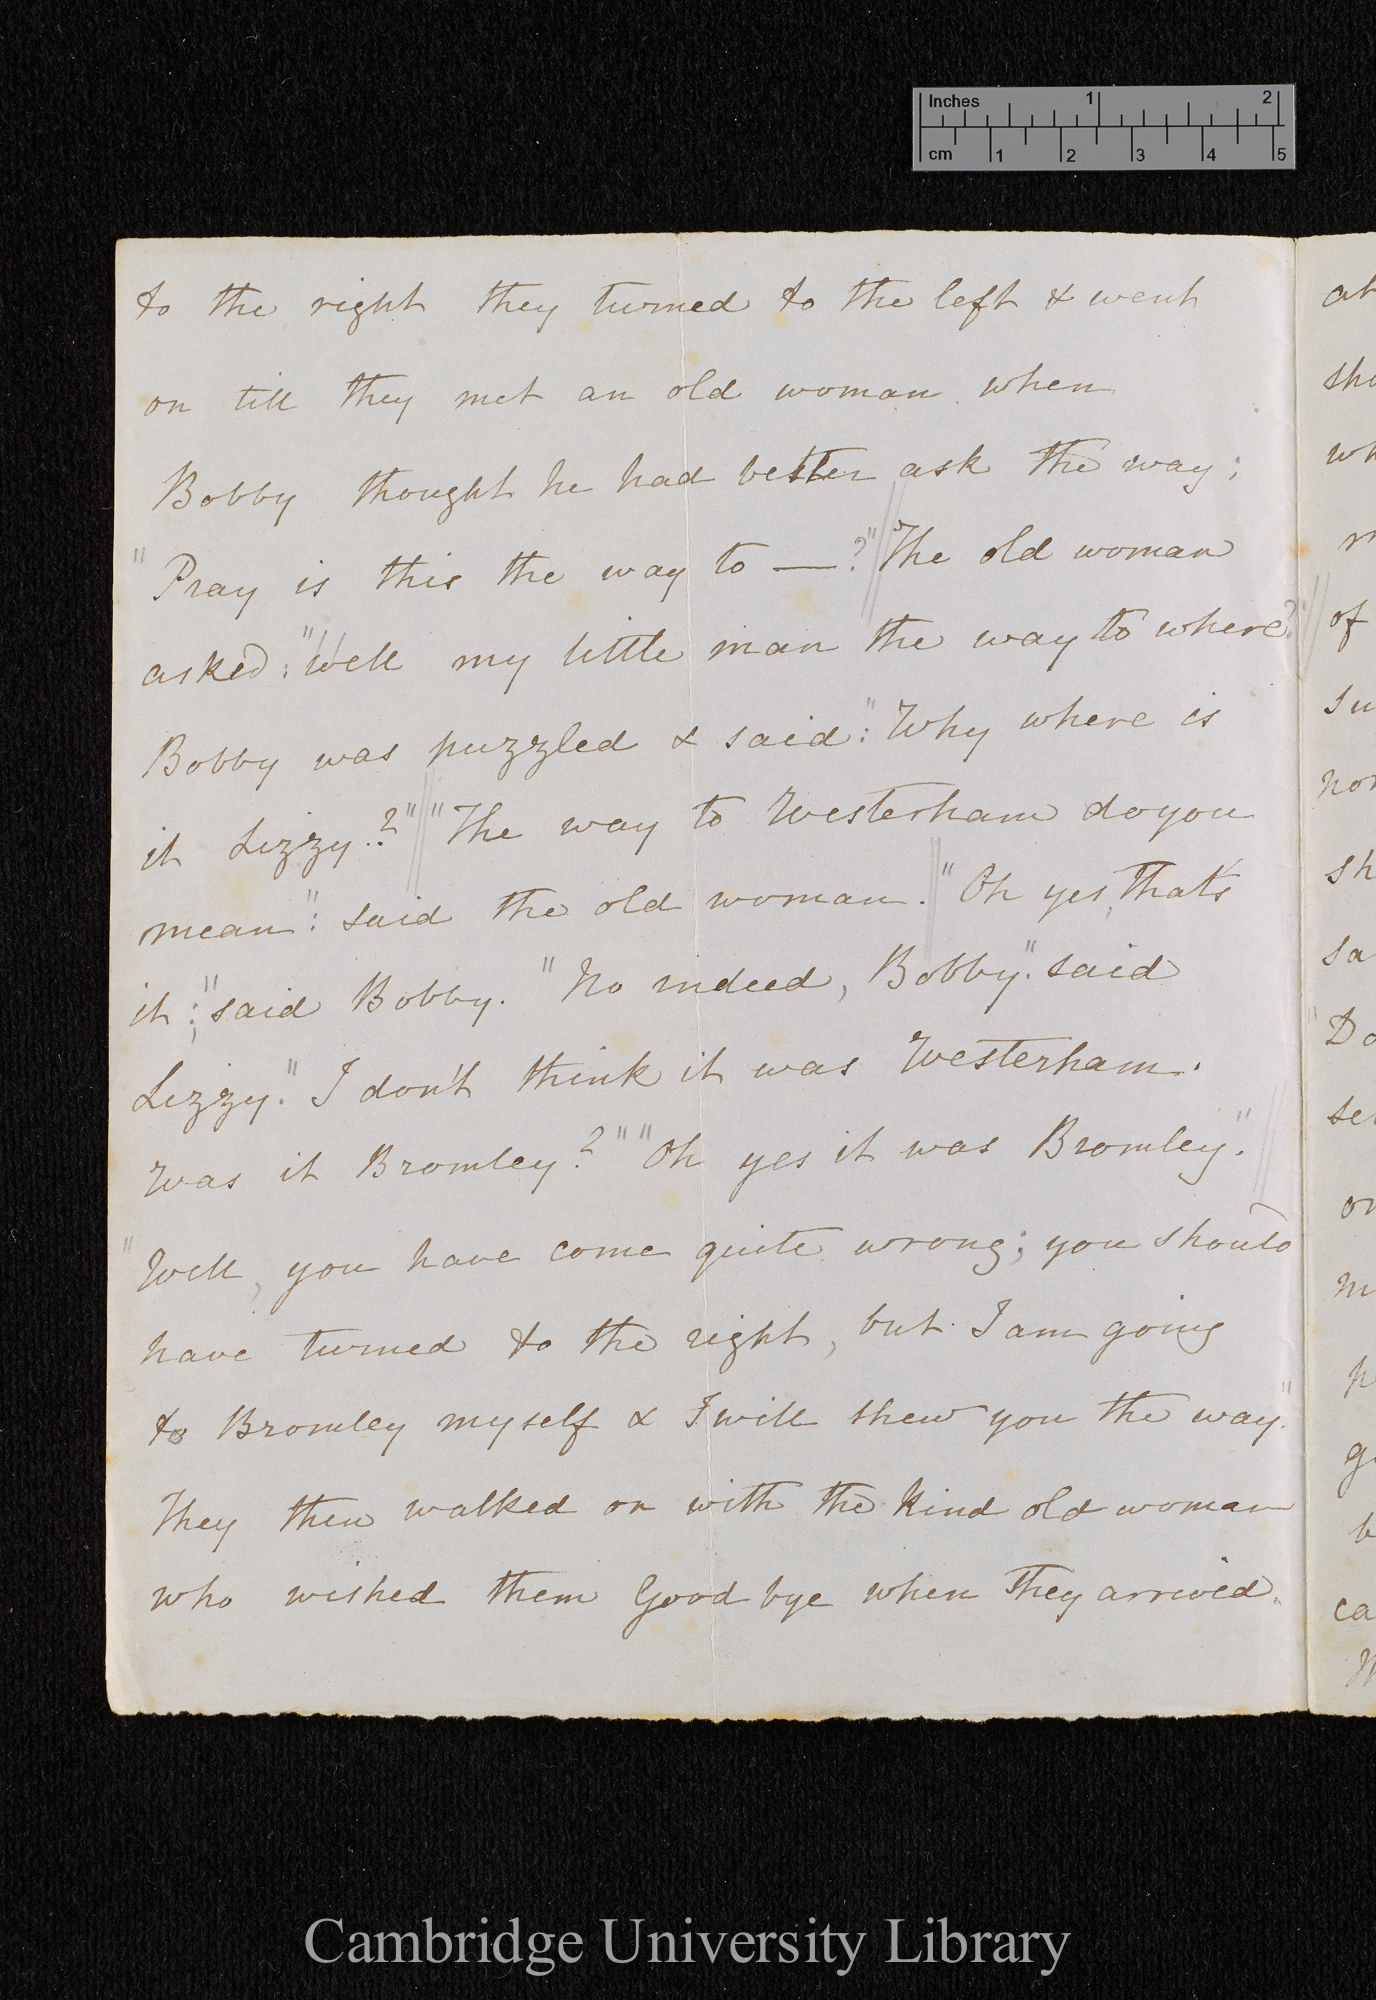 Inches 1 2
cm 1 2 3 4 5
to the right they turned to the left & went
on till they met an old woman when
Bobby thought he had better ask the way;
"Pray is this the way to —?" The old woman
asked: "Well my little man the way to where?"
Bobby was puzzled & said: "Why where is
it Lizzy.?" "The way to Westerham do you
mean": said the old woman. "Oh yes, that's
it;" said Bobby. "No indeed, Bobby". said
Lizzy. "I don't think it was Westerham.
Was it Bromley?" "Oh yes it was Bromley."
"Well, you have come quite wrong; you should
have turned to the right, but I am going
to Bromley myself & I will shew you the way."
They then walked on with the kind old woman
who wished them Good bye when they arrived.
at
of
Cambridge University Library